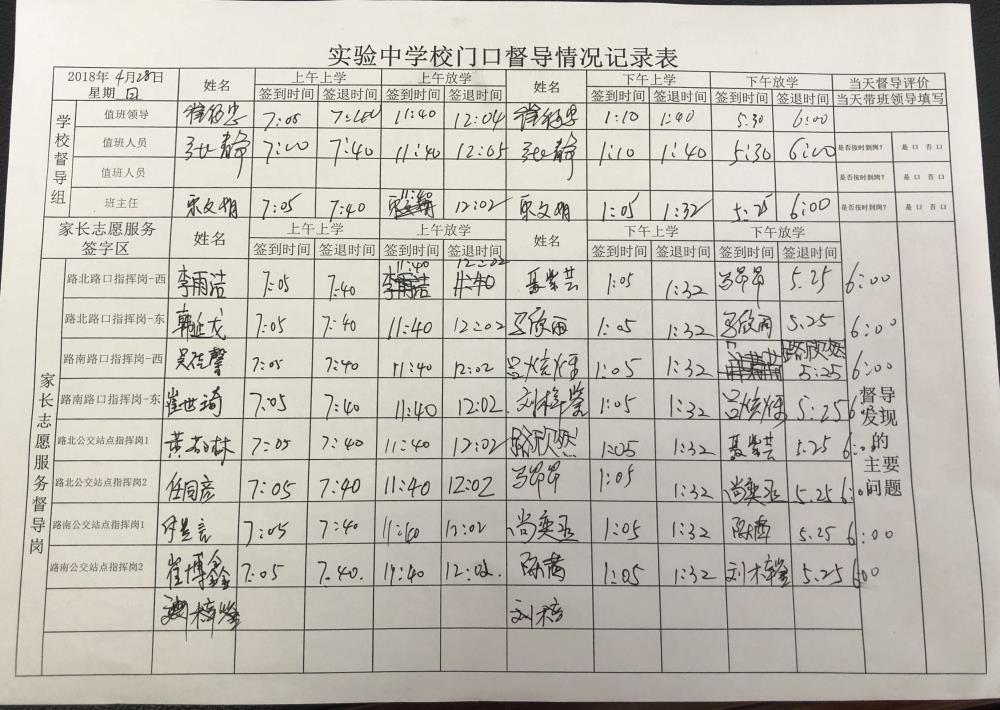 实验中学校门口督导情况记录表
2018年 4月28日 星期 日 姓名 上午上学 上午放学 姓名 下午上学 下午放学 当天督导评价
签到时间 签退时间 签到时间 签退时间 签到时间 签退时间 签到时间 签退时间 当天带班领导填写
学校督导组
值班领导 7:05 7:40 11:40 12:04 1:10 1:40 5:30 6:00
值班人员 张静 7:00 7:40 11:40 12:05 张静 1:10 1:40 5:30 6:00 是否按时到岗? 是口 否口
值班人员 是否按时到岗? 是口 否口
班主任 宋文娟 7:05 7:40 11:40 12:02 宋文娟 1:05 1:32 5:25 6:00 是否按时到岗? 是口 否口
家长志愿服务签字区 姓名 上午上学 上午放学 姓名 下午上学 下午放学
签到时间 签退时间 签到时间 签退时间 签到时间 签退时间 签到时间 签退时间
家长志愿服务督导岗
路北路口指挥岗-西 李雨洁 7:05 7:40 11:40 12:02 聂紫芸 1:05 1:32 马昂昂 5.25 6:00
路北路口指挥岗-东 韩延龙 7:05 7:40 11:40 12:02 马欣雨 1:05 1:32 马欣雨 5.25 6:00
路南路口指挥岗-西 吴佳馨 7:05 7:40 11:40 12:02 1:05 1:32 路欣然 5:25 6:00
路南路口指挥岗-东 崔世琦 7:05 7:40 11:40 12:02 刘梓莹 1:05 1:32 5:25 6:
路北公交站点指挥岗1 7:05 7:40 11:40 12:02 路欣然 1:05 1:32 聂紫芸 5.25 6:00
路北公交站点指挥岗2 任同彦 7:05 7:40 11:40 12:02 马昂昂 1:05 1:32 尚奕丞 5.25 6:00
路南公交站点指挥岗1 付昱言 7:05 7:40 11:40 12:02 尚奕丞 1:05 1:32 陈茜 5.25 6:00
路南公交站点指挥岗2 崔博鑫 7:05 7:40. 11:40 12:02. 陈茜 1:05 1:32 刘梓莹 5.25 6:00
刘梓莹 刘梓
督导发现的主要问题